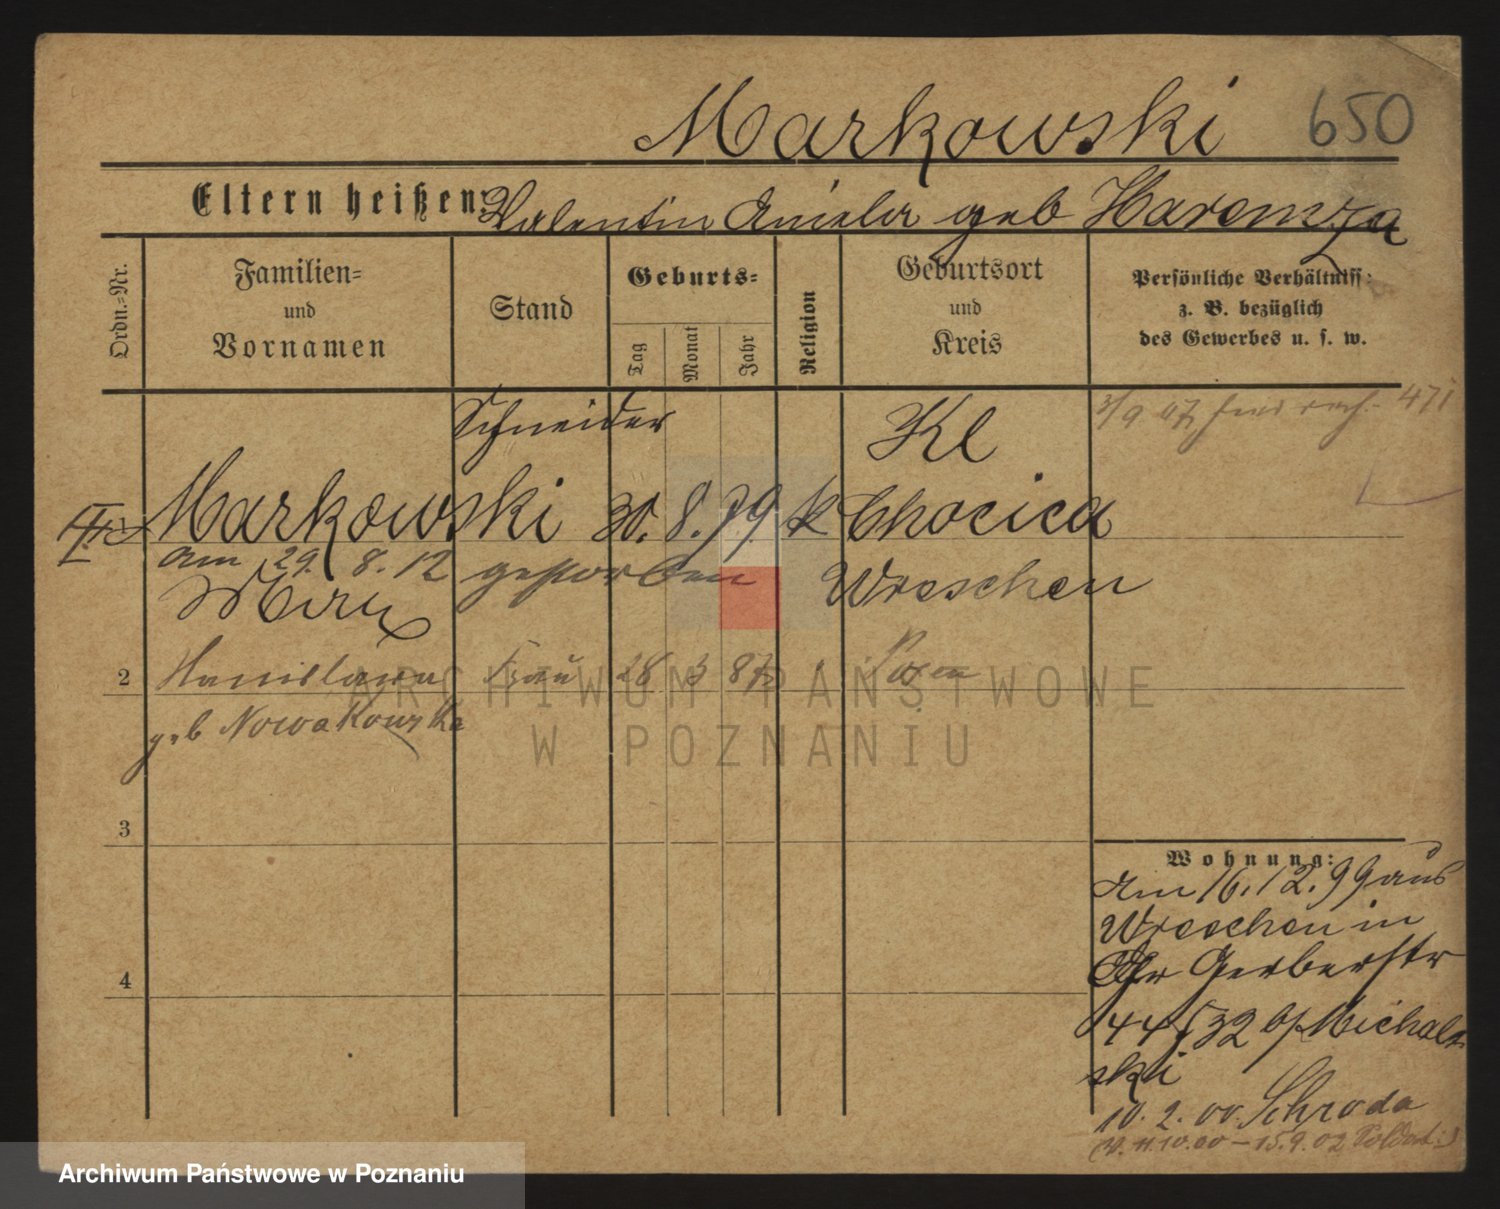 Markowski 650
Eltern heißen: Valentin Aniela geb Haremza
Ordn.=Nr.
Familien=
und
Vornamen
Stand
Geburts=
Tag
Monat
Jahr
Religion
Geburtsort
und
Kreis
Persönliche Verhältniss:
z. B. bezüglich
des Gewerbes u. s. w.
Schneider
Kl
3/9 07 471
Markowski 30. 8. 79 k Chocica
am 29. 8. 12 gestorben Wreschen
2 Stanislawa Frau 28 3 87 Posen
geb Nowakowska
3
4
Wohnung:
Am 16.12.99 aus
Wreschen in
Gerberstr
44 32 b/ Michalow
ski
10. 2. 00. Schroda
11.10.00 – 15.9.02 Soldat
ARCHIWUM PAŃSTWOWE
W POZNANIU
Archiwum Państwowe w Poznaniu